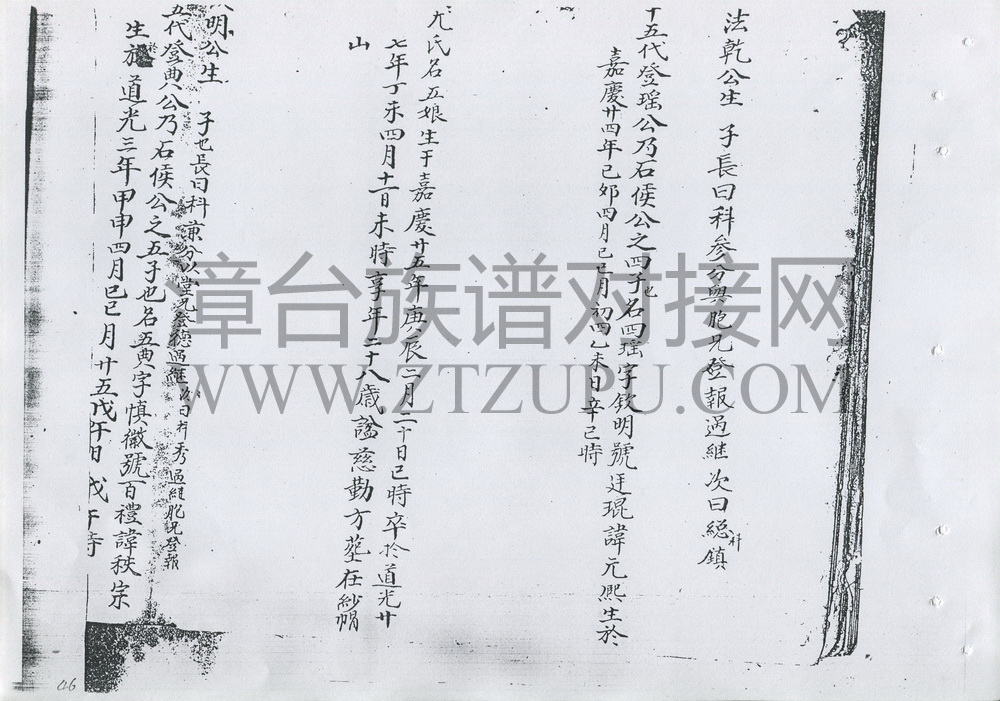 法乾公生 子長曰科參分與胞兄登報過継次曰総鎮
科
十五代登瑶公乃石侯公之四子也名四瑶字欽明號廷琨諱元熈生於
嘉慶廿四年己夘四月己巳月初四乙未日辛巳時
尤氏名五娘生于嘉慶廿五年庚辰二月二十日巳時卒於道光廿
七年丁未四月十一日未時享年二十八歲諡慈勤方塟在紗帽
山
明公生 子也長曰科兼分以堂兄登德過継次曰科秀過継胞兄登報
五代登典公乃石侯公之五子也名五典字慎徽號百禮諱秩宗
生於道光三年甲申四月己巳月廿五戊午日戊午時
章台族谱对接网
WWW.ZTZUPU.COM
06